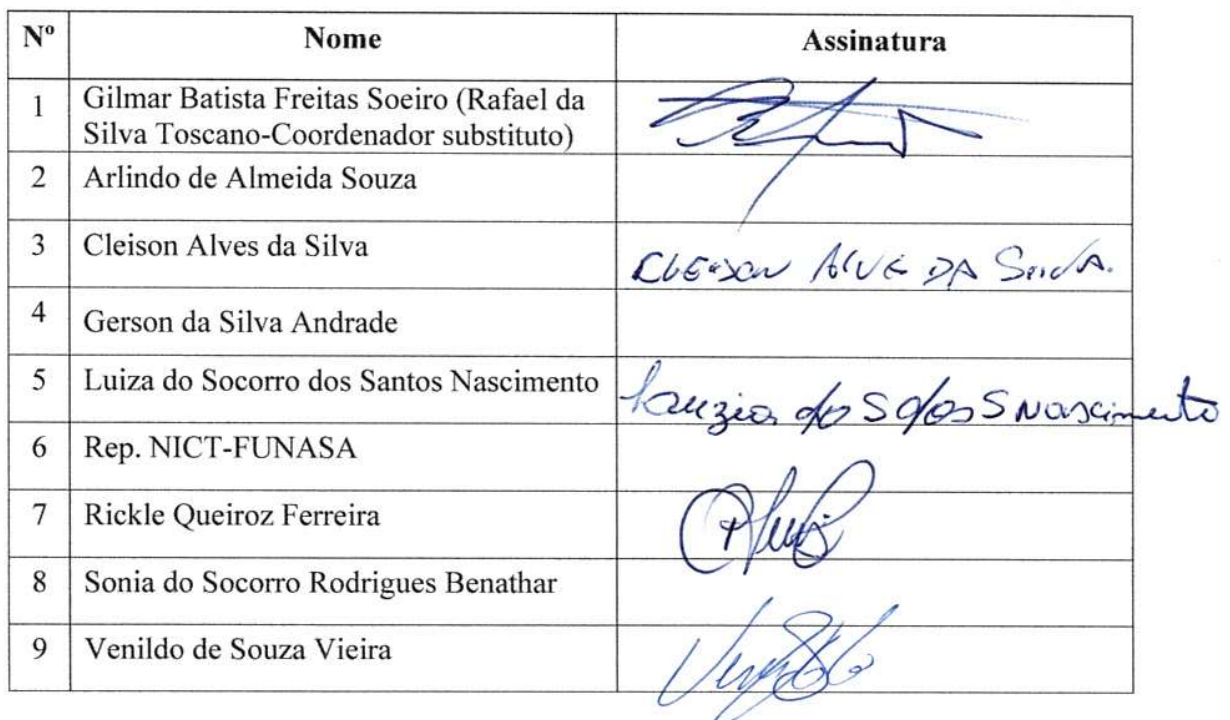 Nº Nome Assinatura
1 Gilmar Batista Freitas Soeiro (Rafael da
Silva Toscano-Coordenador substituto)
2 Arlindo de Almeida Souza
3 Cleison Alves da Silva CLEISON ALVE DA SILVA.
4 Gerson da Silva Andrade
5 Luiza do Socorro dos Santos Nascimento Luiza do S dos S Nascimento
6 Rep. NICT-FUNASA
7 Rickle Queiroz Ferreira
8 Sonia do Socorro Rodrigues Benathar
9 Venildo de Souza Vieira